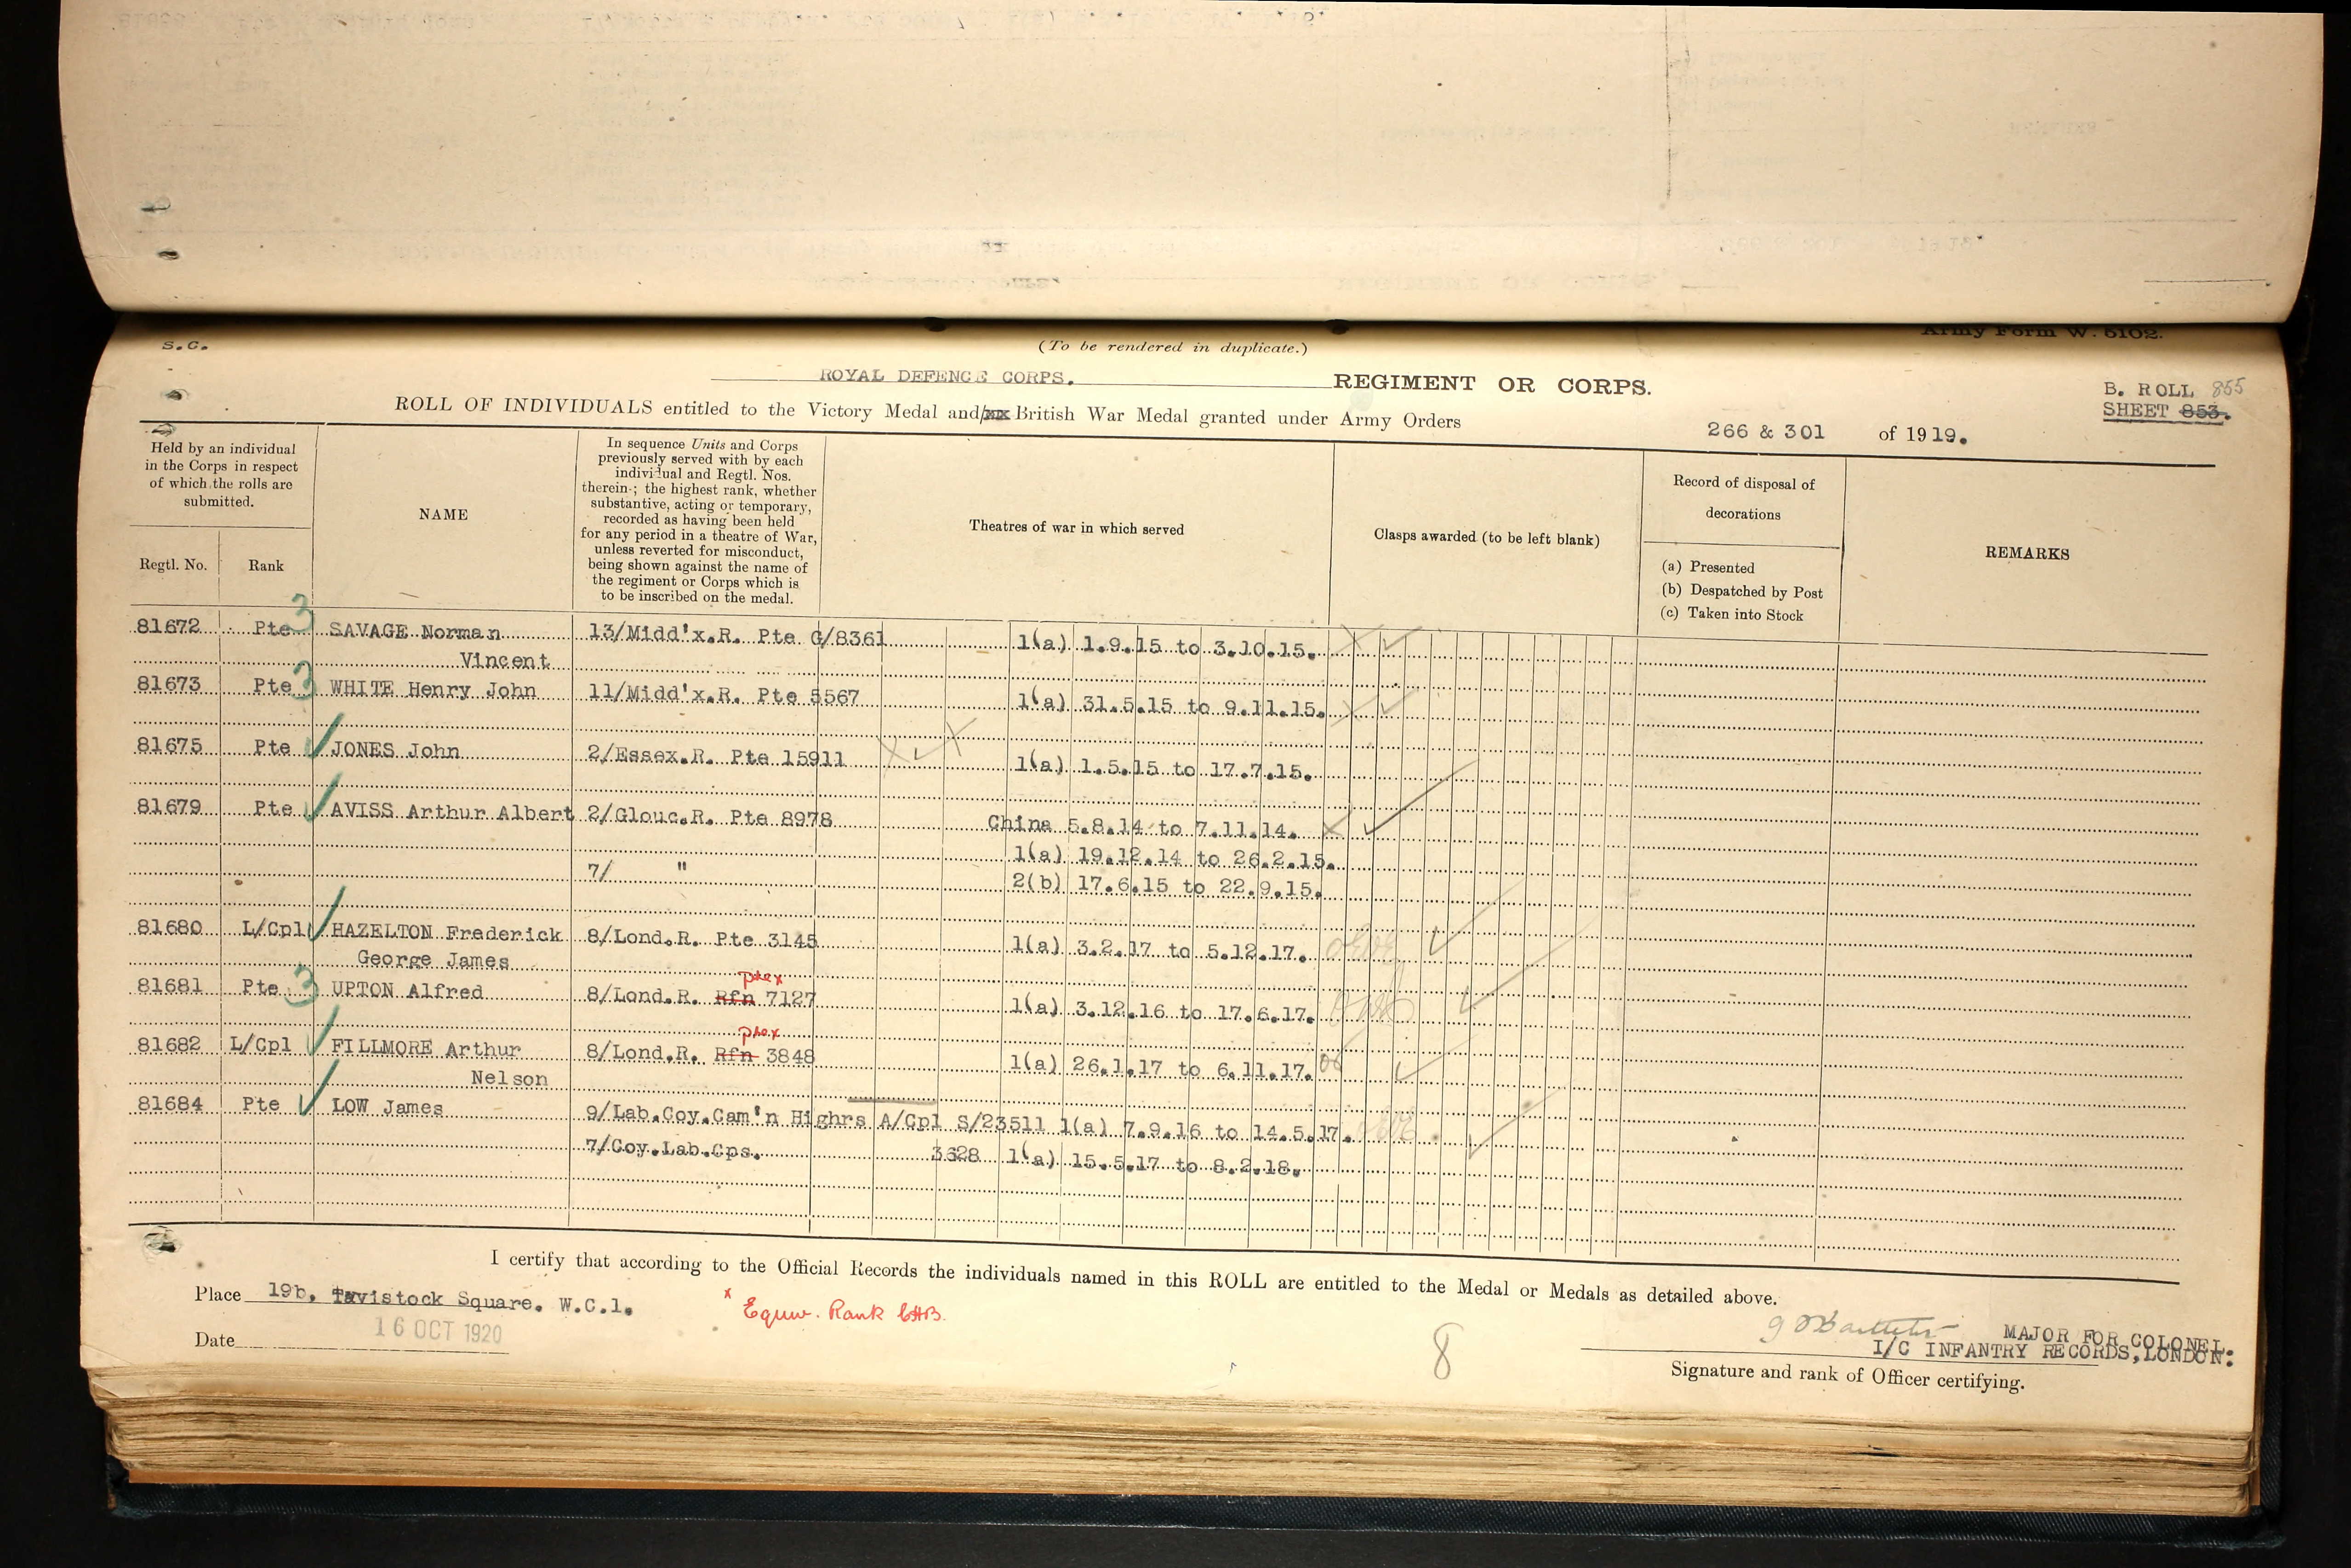 Army Form W. 5102.
S.C.
(To be rendered in duplicate.)
ROYAL DEFENCE CORPS. REGIMENT OR CORPS.
B. ROLL 855
SHEET 853.
ROLL OF INDIVIDUALS entitled to the Victory Medal and/xx British War Medal granted under Army Orders 266 & 301 of 1919.
Held by an individual
in the Corps in respect
of which the rolls are
submitted.
Regtl. No.
Rank
NAME
In sequence Units and Corps
previously served with by each
individual and Regtl. Nos.
therein; the highest rank, whether
substantive, acting or temporary,
recorded as having been held
for any period in a theatre of War,
unless reverted for misconduct,
being shown against the name of
the regiment or Corps which is
to be inscribed on the medal.
Theatres of war in which served
Clasps awarded (to be left blank)
Record of disposal of
decorations
(a) Presented
(b) Despatched by Post
(c) Taken into Stock
REMARKS
81672 Pte 3 SAVAGE Norman 13/Midd'x.R. Pte G/8361 1(a) 1.9.15 to 3.10.15.
Vincent
81673 Pte 3 WHITE Henry John 11/Midd'x.R. Pte 5567 1(a) 31.5.15 to 9.11.15.
81675 Pte JONES John 2/Essex.R. Pte 15911 1(a) 1.5.15 to 17.7.15.
81679 Pte AVISS Arthur Albert 2/Glouc.R. Pte 8978 China 5.8.14 to 7.11.14.
1(a) 19.12.14 to 26.2.15.
7/ " 2(b) 17.6.15 to 22.9.15.
81680 L/Cpl HAZELTON Frederick 8/Lond.R. Pte 3145 1(a) 3.2.17 to 5.12.17.
George James
pte x
81681 Pte 3 UPTON Alfred 8/Lond.R. Rfn 7127 1(a) 3.12.16 to 17.6.17.
pte x
81682 L/Cpl FILLMORE Arthur 8/Lond.R. Rfn 3848 1(a) 26.1.17 to 6.11.17.
Nelson
81684 Pte LOW James 9/Lab.Coy.Cam'n Highrs A/Cpl S/23511 1(a) 7.9.16 to 14.5.17.
7/Coy.Lab.Cps. 3628 1(a) 15.5.17 to 8.2.18.
I certify that according to the Official Records the individuals named in this ROLL are entitled to the Medal or Medals as detailed above.
Place 19b, Tavistock Square. W.C.1.
x Equiv. Rank
Date 16 OCT 1920
8
MAJOR FOR COLONEL.
I/C INFANTRY RECORDS, LONDON.
Signature and rank of Officer certifying.